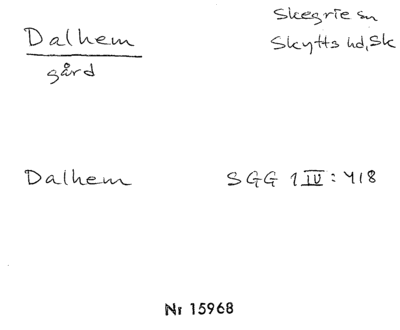 Dalhem
gård
Skegrie sn
Skytts hd, Sk
Dalhem
SGG 1 IV: 418
Nr 15968